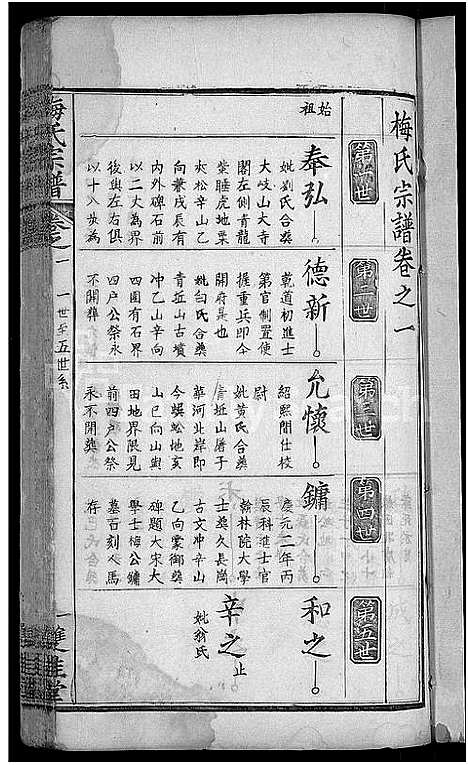 梅氏宗譜卷之一
第一世
第二世
第三世
第四世
第五世
始祖
奉弘
妣劉氏合葬
大岐山大寺
閣左側青龍
柴睡虎地菓
夾松辛山乙
向兼戌辰有
內外碑石前
以二丈為界
後與左右俱
以十八步為
德新
乾道初進士
第官制置使
握重兵即今
開府是也
妣白氏合葬
青坵山古墳
冲乙山辛向
四圍有石界
四户公祭永
不開葬
允懷
紹熙間仕校
尉
妣黃氏合葬
青坵山磨子
華河北岸即
今蜈蚣地亥
山巳向山與
田地界限見
前四户公祭
永不開葬
鏞
慶元二年丙
辰科進士官
翰林院大學
士葬久長崗
古文冲辛山
乙向蒙御葬
碑題大宋大
學士梅公鏞
墓石刻人馬
存
和之
辛之止
妣翁氏
梅氏宗譜
卷之一
一世至五世系
一
雙桂堂